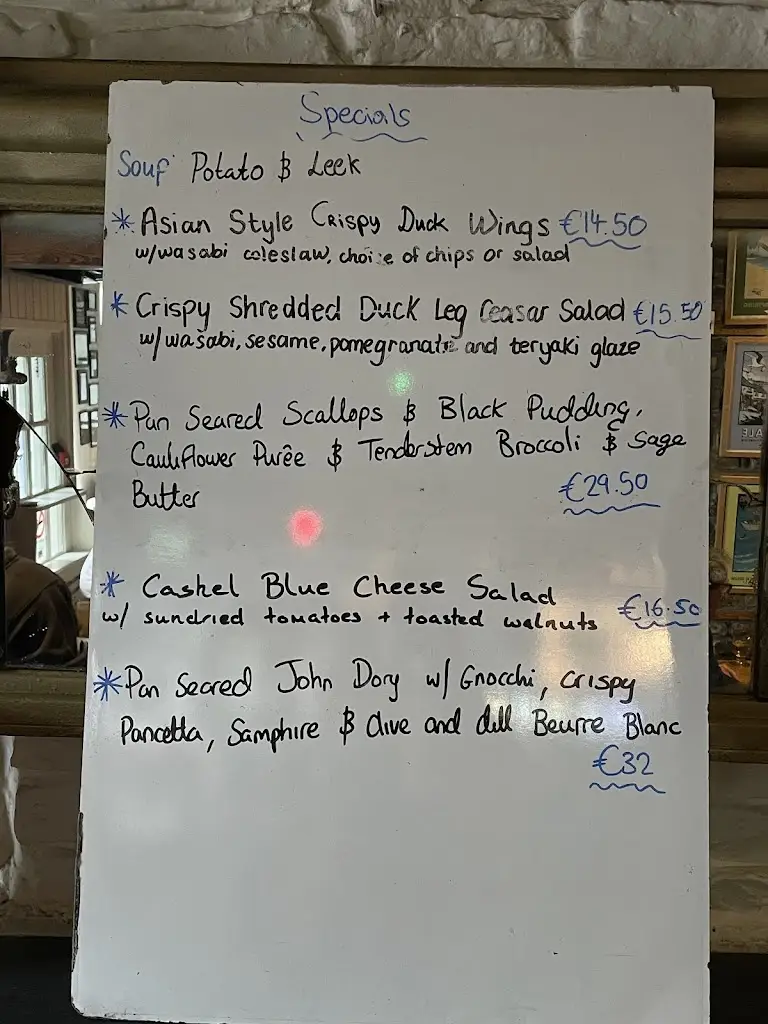 Specials
Soup Potato & Leek
* Asian Style Crispy Duck Wings €14.50
w/wasabi coleslaw, choice of chips or salad
* Crispy Shredded Duck Leg Ceasar Salad €15.50
w/wasabi, sesame, pomegranate and teryaki glaze
* Pan Seared Scallops & Black Pudding,
Cauliflower Purêe & Tenderstem Broccoli & Sage
Butter €29.50
* Cashel Blue Cheese Salad
w/ sundried tomatoes + toasted walnuts €16.50
* Pan Seared John Dory w/ Gnocchi, crispy
Pancetta, Samphire & Olive and dill Beurre Blanc
€32